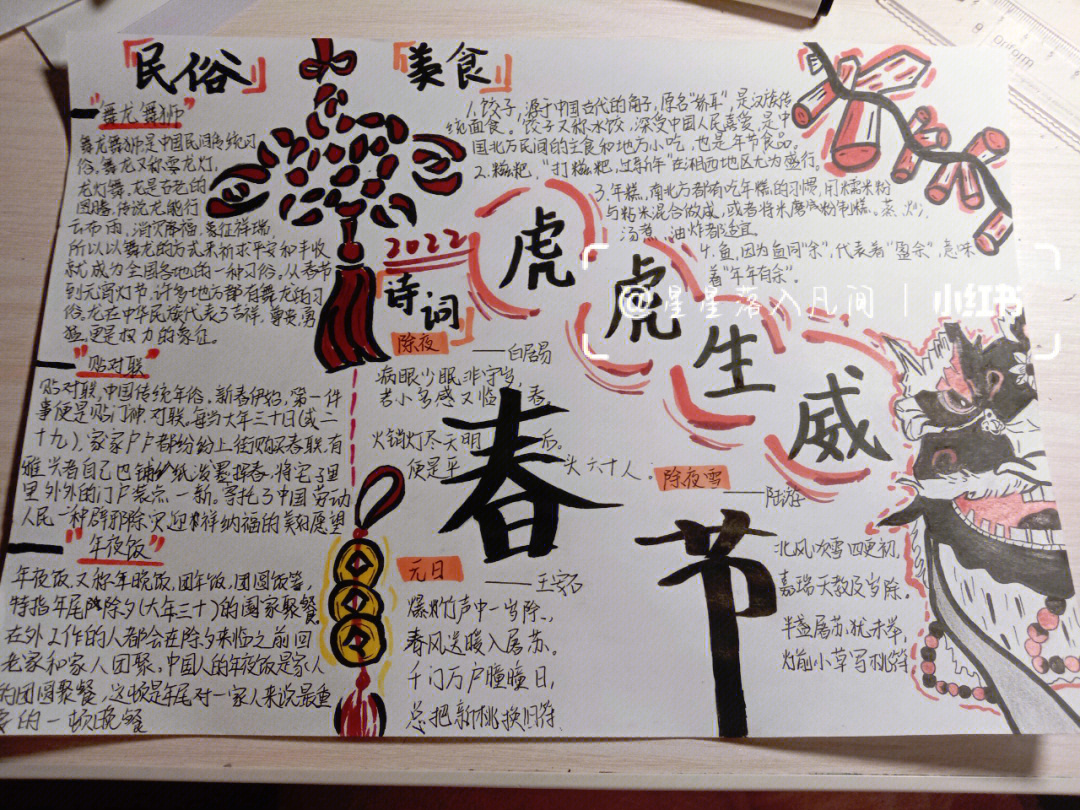 民俗
"舞龙舞狮"
舞龙舞狮是中国民间传统习
俗,舞龙又称耍龙灯,
龙灯舞,龙是古老的
图腾,传说龙能行
云布雨,消灾降福,象征祥瑞,
所以以舞龙的方式来祈求平安和丰收
就成为全国各地的一种习俗。从春节
到元宵灯节,许多地方都有舞龙的习
俗,龙在中华民族代表了吉祥,尊贵,勇
猛,更是权力的象征。
"贴对联"
贴对联,中国传统年俗,新春伊始,第一件
事便是贴门神,对联,每当大年三十日(或二
十九),家家户户都纷纷上街购买春联,有
雅兴者自己也铺纸泼墨挥春,将宅子里
里外外的门户装点一新。寄托了中国劳动
人民一种辟邪除灾,迎祥纳福的美好愿望
"年夜饭"
年夜饭,又称年晚饭,团年饭,团圆饭等,
特指年尾除夕(大年三十)的阖家聚餐
在外工作的人都会在除夕来临之前回
老家和家人团聚,中国人的年夜饭是家人
的团圆聚餐,这顿是年尾对一家人来说最重
要的一顿晚餐
美食
1.饺子,源于中国古代的角子,原名"娇耳",是汉族传
统面食。饺子又称水饺,深受中国人民喜爱,是中
国北方民间的主食和地方小吃,也是年节食品。
2.糍粑,"打糍粑,过新年"在湘西地区尤为盛行。
3.年糕,南北方都有吃年糕的习惯,用糯米粉
与粘米混合做成,或者将米磨成粉制糕。蒸,炒,
汤煮,油炸都适宜。
4.鱼,因为鱼同"余",代表着"盈余",意味
着"年年有余"。
2022
虎虎生威
@星星落入凡间 | 小红书
诗词
除夜
——白居易
病眼少眠非守岁,
老心多感又临春。
火销灯尽天明后。
便是平头六十人。
春节
元日
——王安石
爆竹声中一岁除,
春风送暖入屠苏。
千门万户曈曈日,
总把新桃换旧符。
除夜雪
——陆游
北风吹雪四更初,
嘉瑞天教及岁除。
半盏屠苏犹未举,
灯前小草写桃符
Uniform